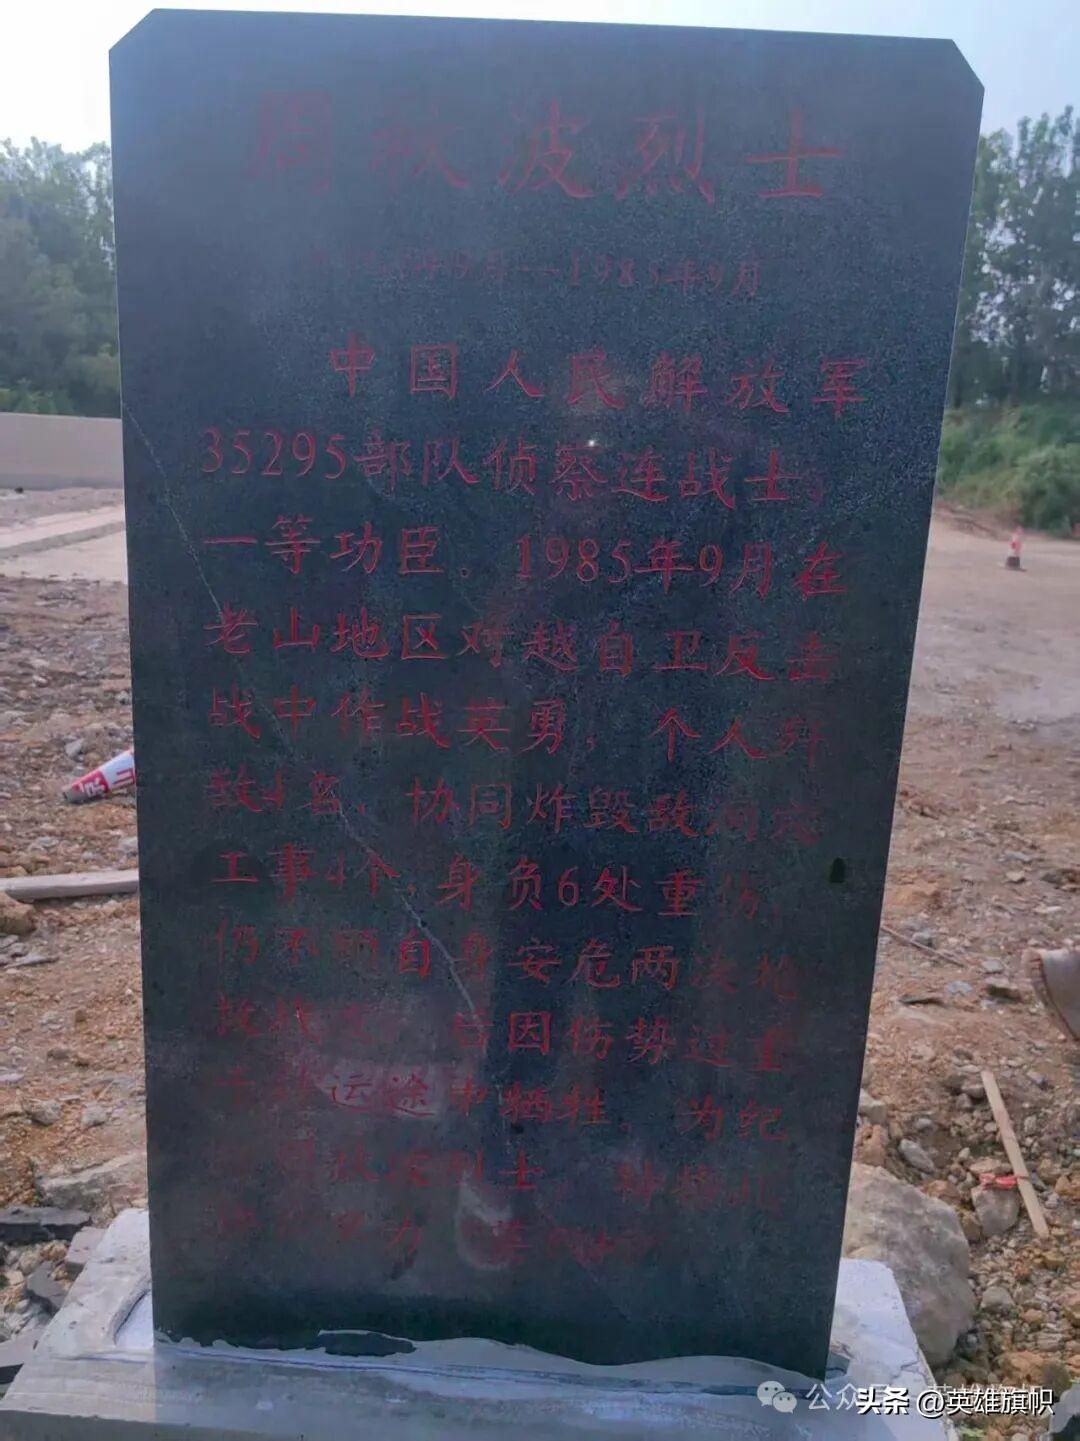 周秋波烈士
年9月--1985年9月
中国人民解放军
35295部队侦察连战士。
一等功臣。1985年9月在
老山地区对越自卫反击
战中作战英勇，个人歼
敌4名，协同炸毁敌洞穴
工事4个，身负6处重伤，
仍不顾自身安危两次抢
救战友，后因伤势过重
运途中牺牲。为纪
秋波烈士，特将此
公众 头条 @英雄旗帜